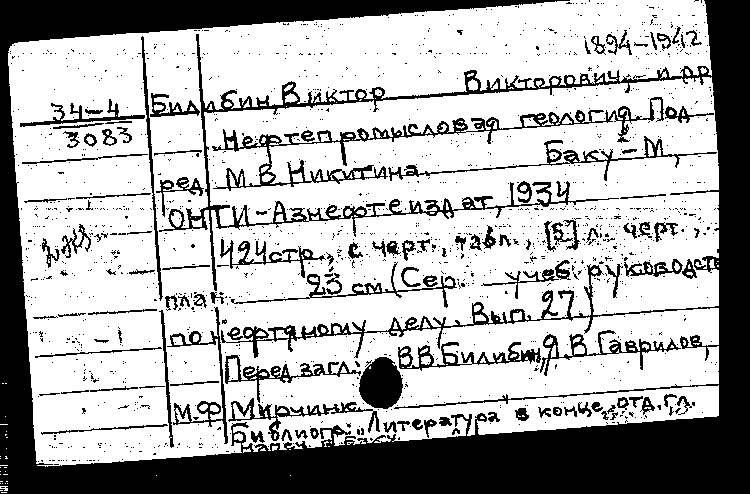 1894-1942
34-4
3083
Билибин, Виктор Викторович, и др
Нефтепромысловая геология. Под
ред. М.В.Никитина. Баку-М,
ОНТИ-Азнефтеиздат, 1934
424 стр., с черт., табл., [5] л. черт.,
план. 23 см. (Сер. учеб. руководств
по нефтяному делу. Вып. 27.)
Перед загл.: В.В.Билибин, Л.В.Гаврилов,
М.Ф Мирчинк
Библиогр.: "Литература" в конце отд. гл.